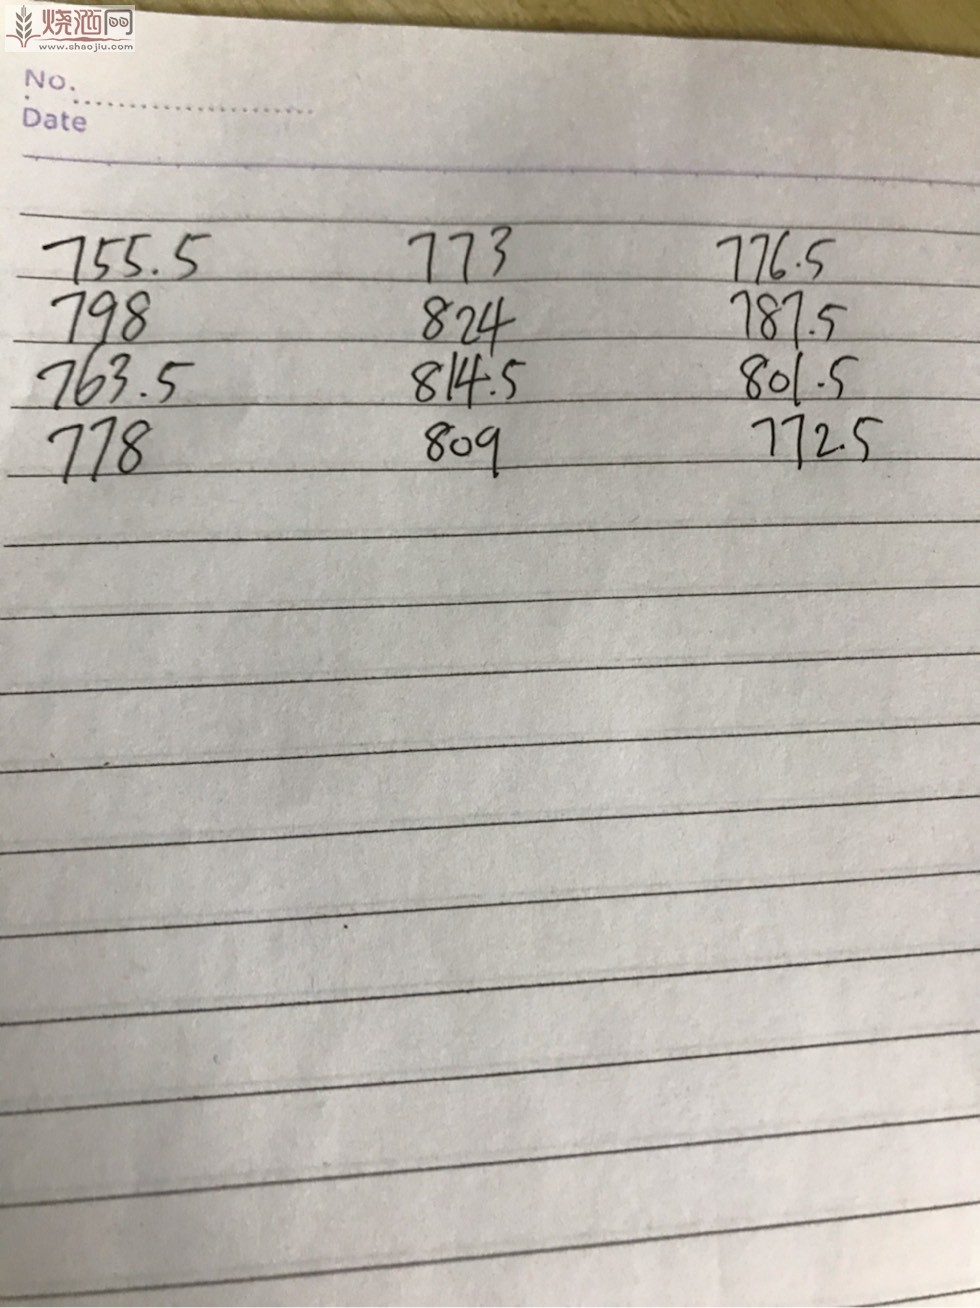 烧酒网
www.shaojiu.com
No.
Date
755.5 773 776.5
798 824 787.5
763.5 814.5 801.5
778 809 772.5